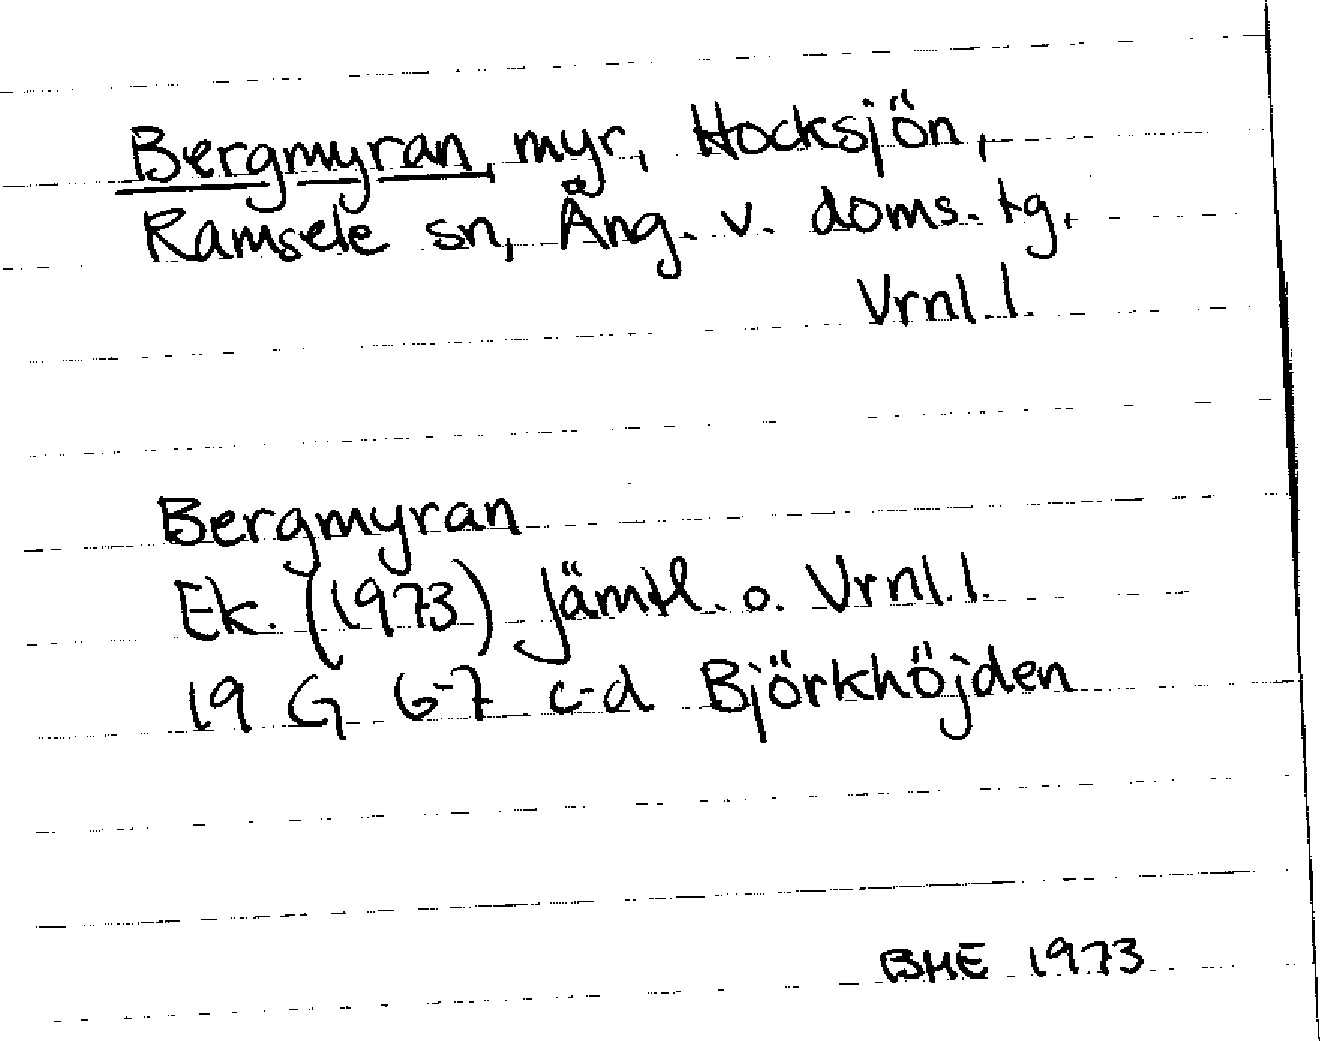 Bergmyran, myr, Hocksjön,
Ramsele sn, Ång. v. doms. tg,
Vrnl. l.
Bergmyran
Ek. (1973) Jämtl. o. Vrnl. l.
19 G 6-7 c-d Björkhöjden
BHE 1973